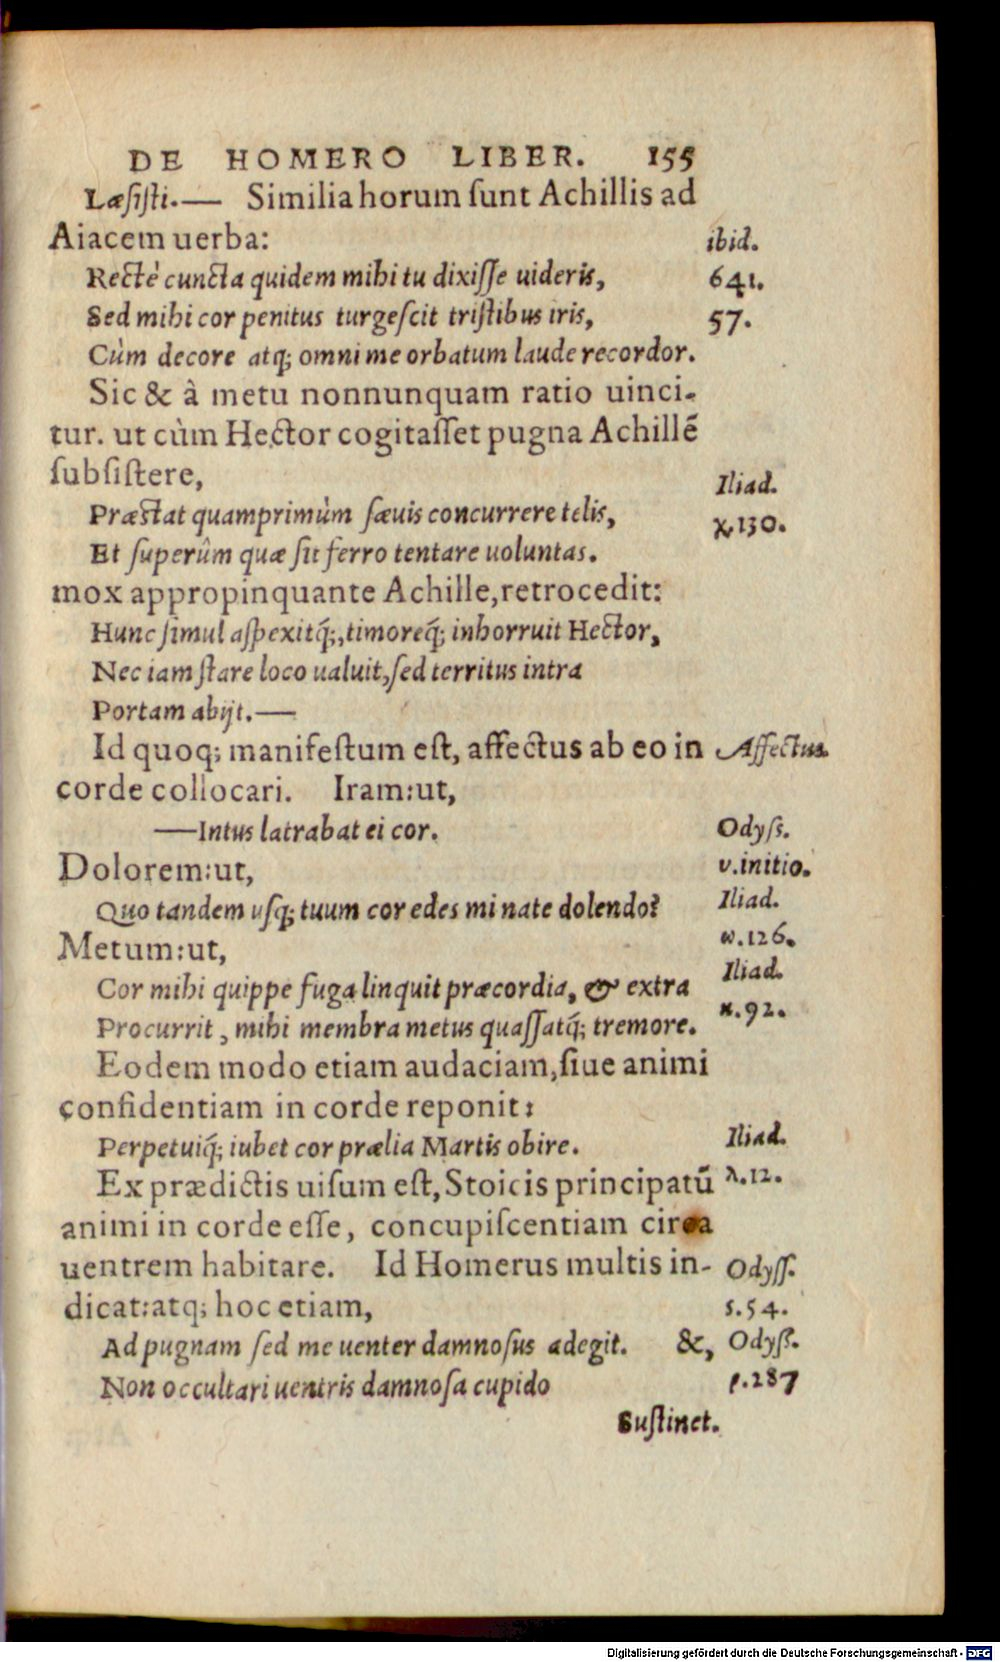 DE HOMERO LIBER. 155
Læſiſti.— Similia horum ſunt Achillis ad
Aiacem uerba:
ibid.
Rectè cuncta quidem mihi tu dixiſſe uideris,
641.
Sed mihi cor penitus turgeſcit triſtibus iris,
57.
Cùm decore atq; omni me orbatum laude recordor.
Sic & à metu nonnunquam ratio uinci-
tur. ut cùm Hector cogitaſſet pugna Achillē
ſubſiſtere,
Iliad.
Præſtat quamprimùm ſæuis concurrere telis,
χ.130.
Et ſuperûm quæ ſit ferro tentare uoluntas.
mox appropinquante Achille, retrocedit:
Hunc ſimul aſpexitq́;, timoreq́; inhorruit Hector,
Nec iam ſtare loco ualuit, ſed territus intra
Portam abijt.—
Id quoq; manifeſtum eſt, affectus ab eo in
Affectus.
corde collocari. Iram: ut,
—Intus latrabat ei cor.
Odyſs.
Dolorem: ut,
υ.initio.
Quo tandem uſq; tuum cor edes mi nate dolendo?
Iliad.
ω.126.
Metum: ut,
Iliad.
Cor mihi quippe fuga linquit præcordia, & extra
κ.92.
Procurrit, mihi membra metus quaſſatq́; tremore.
Eodem modo etiam audaciam, ſiue animi
confidentiam in corde reponit:
Iliad.
Perpetuiq́; iubet cor prælia Martis obire.
λ.12.
Ex prædictis uiſum eſt, Stoicis principatū
animi in corde eſſe, concupiſcentiam circa
uentrem habitare. Id Homerus multis in-
Odyſſ.
dicat: atq; hoc etiam,
ς.54.
Ad pugnam ſed me uenter damnoſus adegit. &,
Odyſſ.
Non occultari uentris damnoſa cupido
ρ.287
Suſtinet.